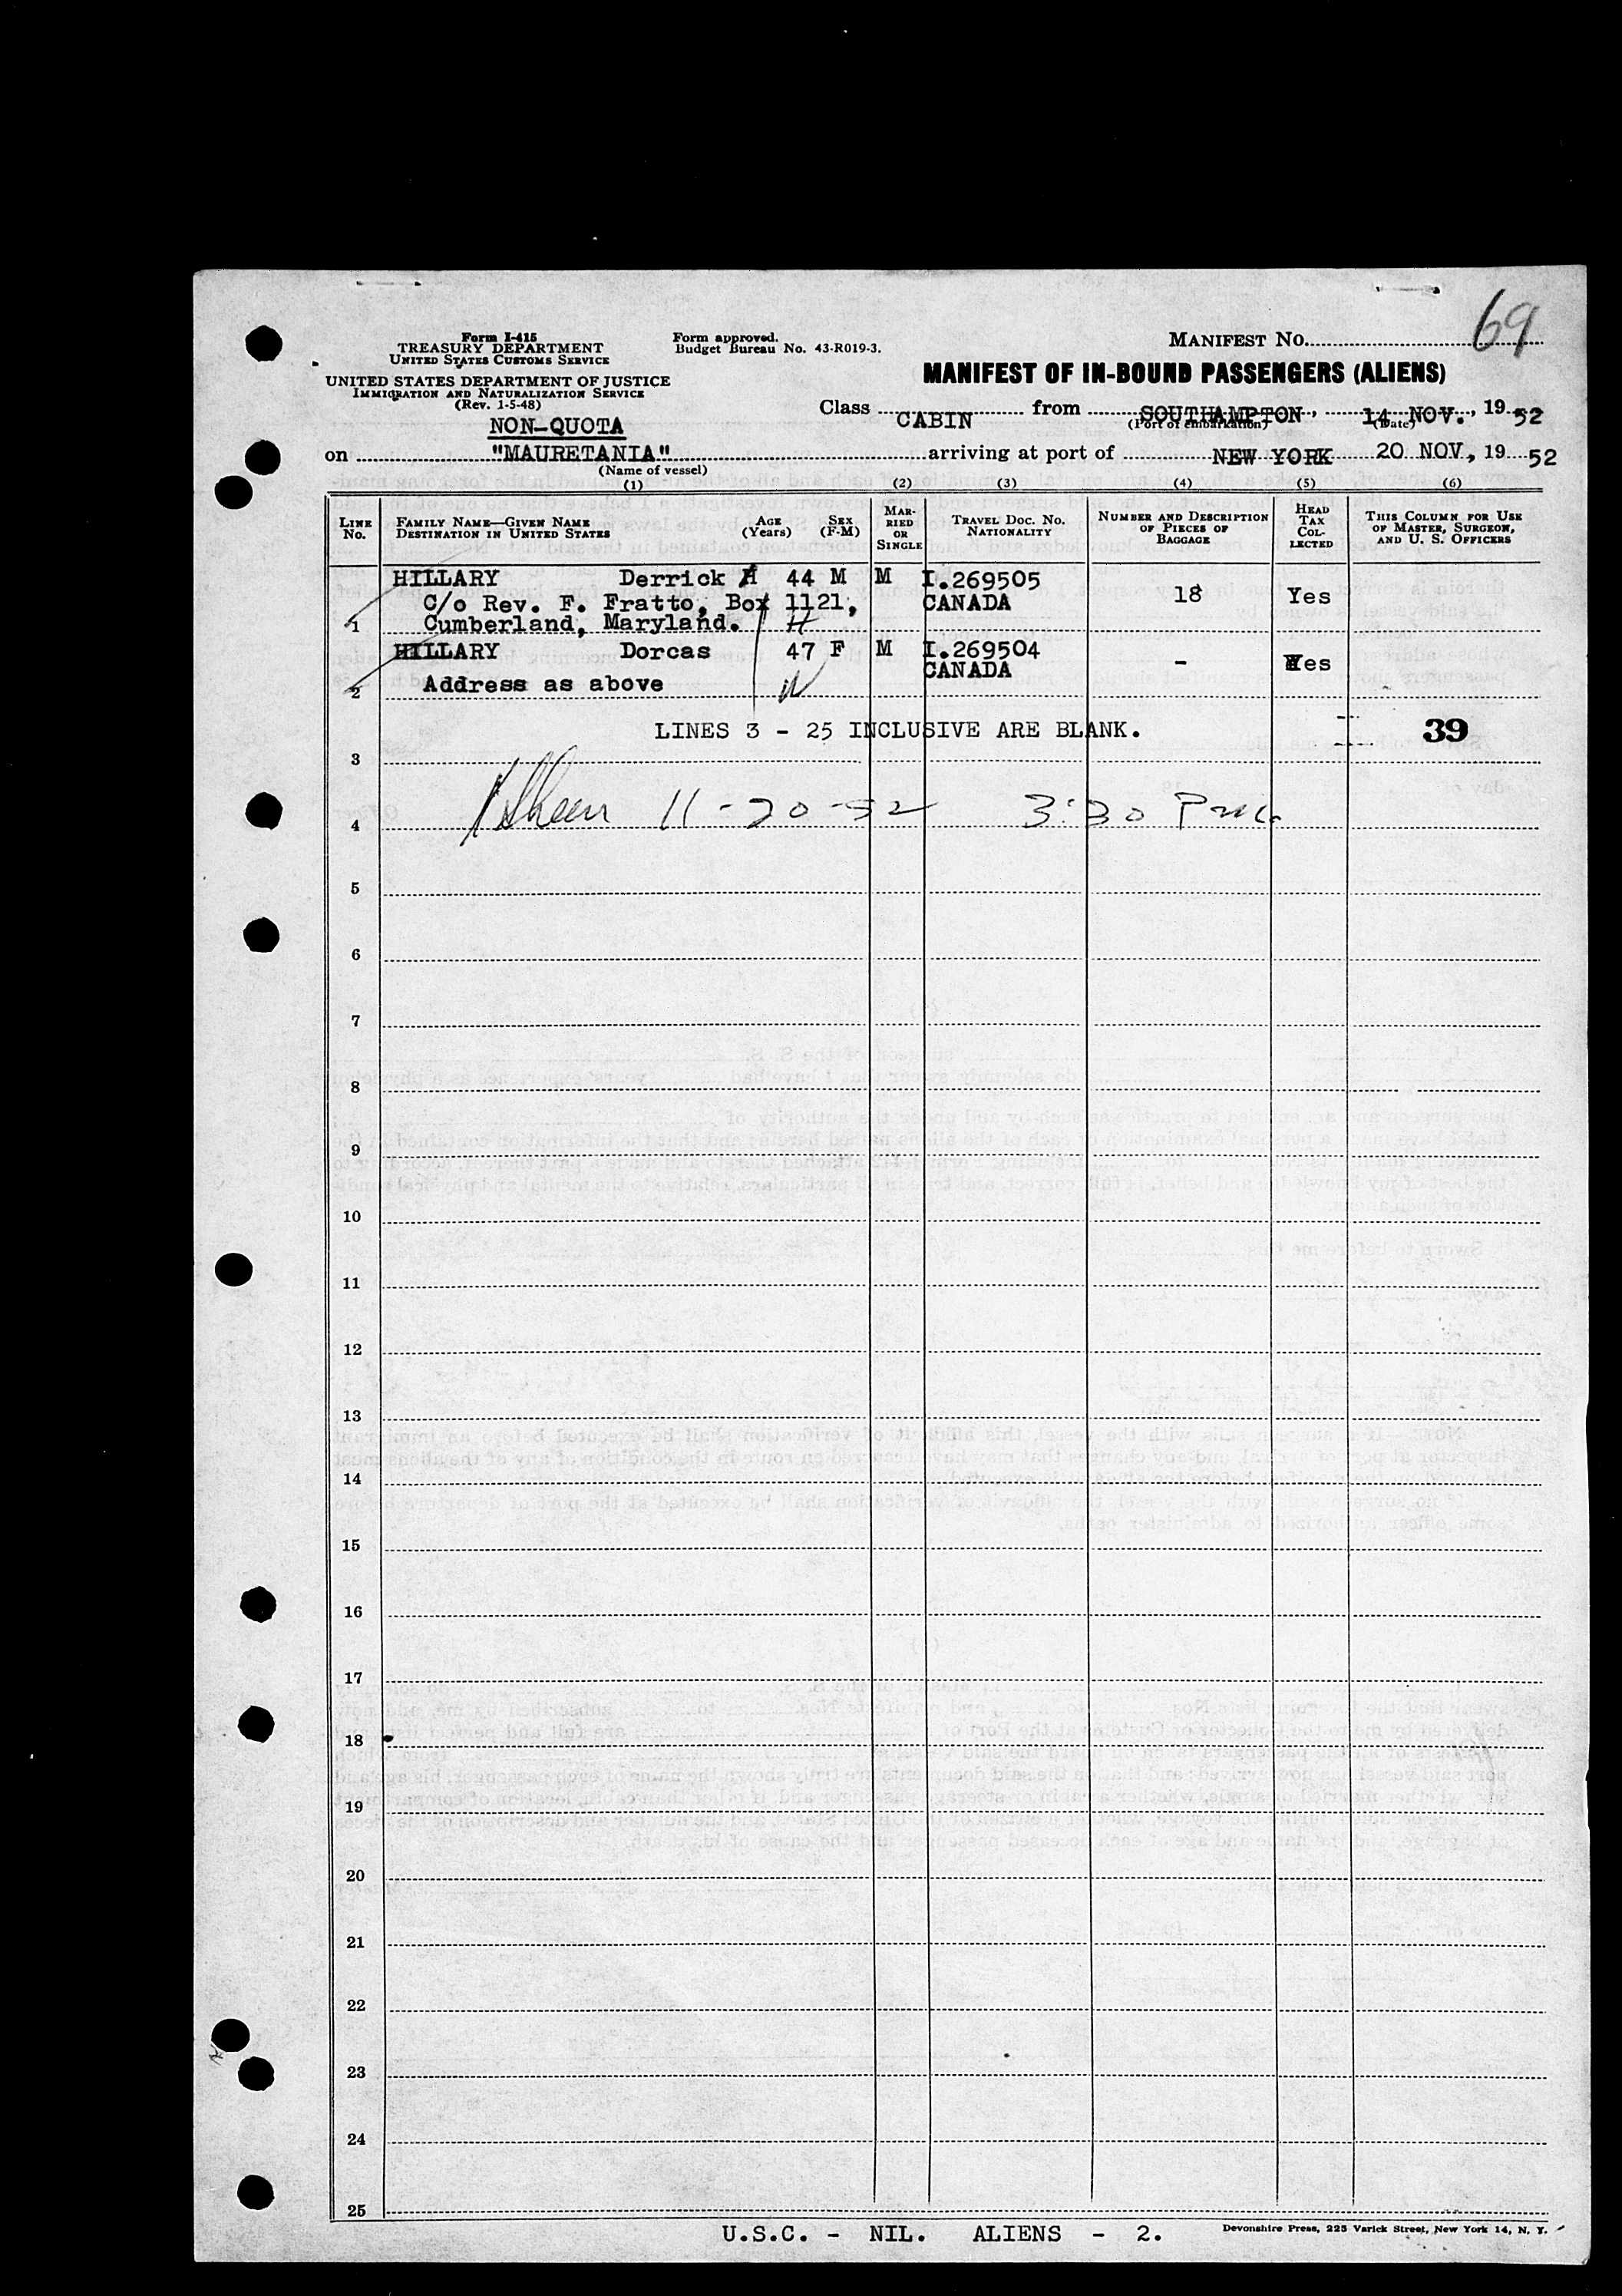 Form I-415
TREASURY DEPARTMENT
UNITED STATES CUSTOMS SERVICE
UNITED STATES DEPARTMENT OF JUSTICE
IMMIGRATION AND NATURALIZATION SERVICE
(Rev. 1-5-48)
Form approved.
Budget Bureau No. 43-R019-3.
MANIFEST NO. 69
MANIFEST OF IN-BOUND PASSENGERS (ALIENS)
NON-QUOTA
Class CABIN from SOUTHAMPTON, 14 NOV., 1952
(Port of embarkation) (Date)
on "MAURETANIA" arriving at port of NEW YORK 20 NOV, 1952
(Name of vessel)
(1) (2) (3) (4) (5) (6)
LINE NO. FAMILY NAME—GIVEN NAME DESTINATION IN UNITED STATES AGE (Years) SEX (F-M) MARRIED OR SINGLE TRAVEL DOC. NO. NATIONALITY NUMBER AND DESCRIPTION OF PIECES OF BAGGAGE HEAD TAX COLLECTED THIS COLUMN FOR USE OF MASTER, SURGEON, AND U. S. OFFICERS
HILLARY Derrick H 44 M M I.269505
C/o Rev. F. Fratto, Box 1121, CANADA 18 Yes
1 Cumberland, Maryland.
HILLARY Dorcas 47 F M I.269504
CANADA - Yes
2 Address as above
LINES 3 - 25 INCLUSIVE ARE BLANK. 39
3
4 11-20-52 3:30 Pm
5
6
7
8
9
10
11
12
13
14
15
16
17
18
19
20
21
22
23
24
25
U.S.C. - NIL. ALIENS - 2.
Devonshire Press, 225 Varick Street, New York 14, N. Y.